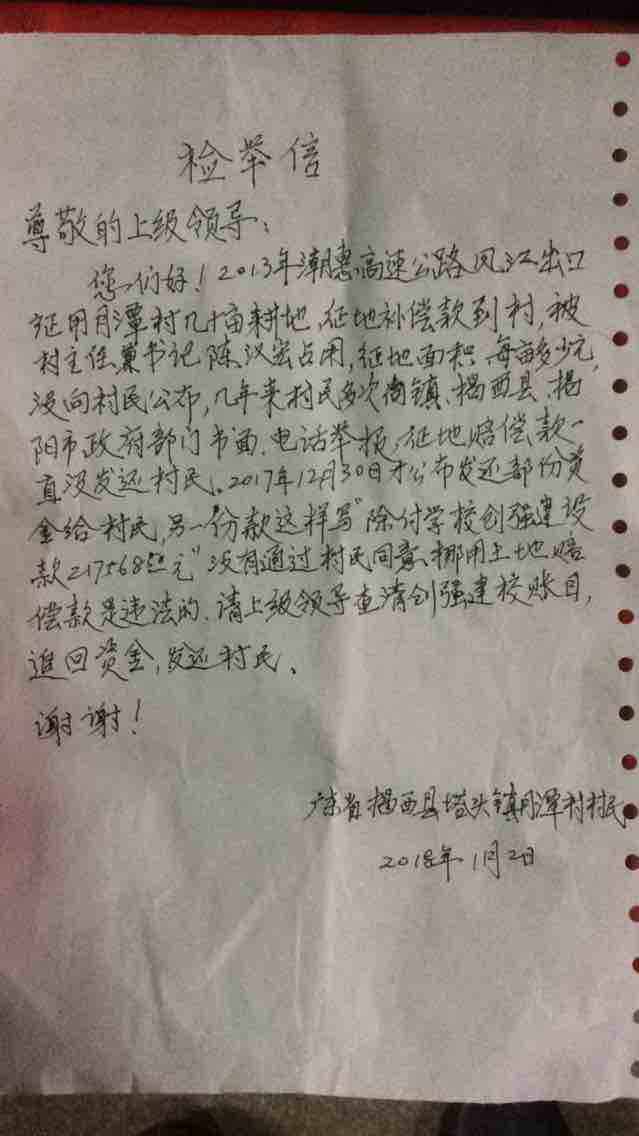 检举信
尊敬的上级领导:
您们好!2013年潮惠高速公路风江出口
征用月潭村几十亩耕地,征地补偿款到村,被
村主任兼书记陈汉宏占用,征地面积、每亩多少元,
没向村民公布,几年来村民多次向镇、揭西县、揭
阳市政府部门书面、电话举报,征地赔偿款一
直没发还村民。2017年12月30日才公布发还部份资
金给村民,另一份款这样写"除付学校创强建设
款217568元"没有通过村民同意、挪用土地赔
偿款是违法的、请上级领导查清创强建校账目,
追回资金,发还村民、
谢谢!
广东省揭西县塔头镇月潭村村民
2018年1月2日